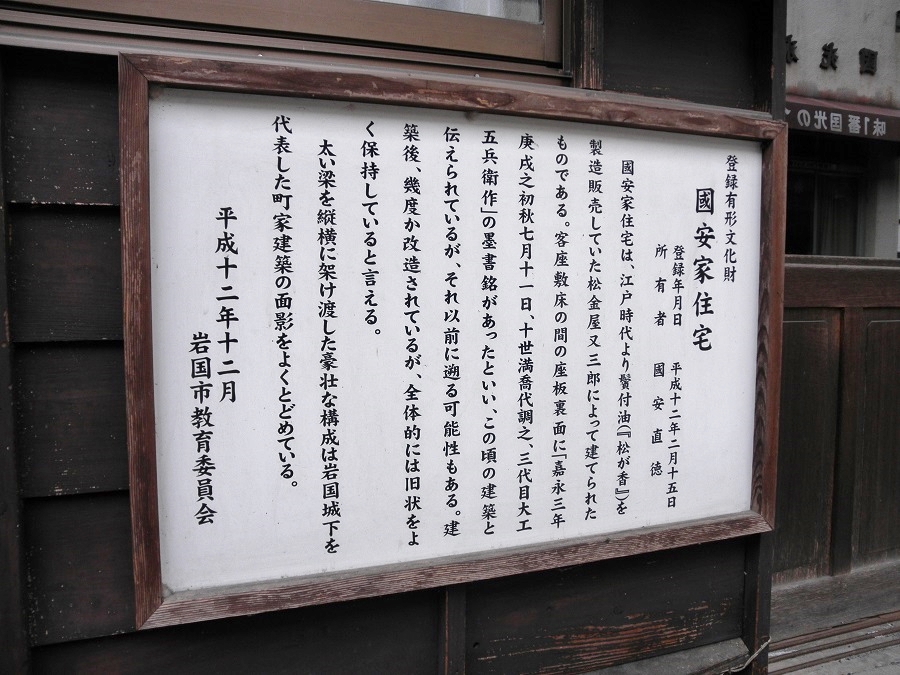 登録有形文化財
國安家住宅
登録年月日　平成十二年二月十五日
所有者　國安直徳
國安家住宅は、江戸時代より鬢付油(『松が香』)を
製造販売していた松金屋又三郎によって建てられた
ものである。客座敷床の間の座板裏面に「嘉永三年
庚戌之初秋七月十一日、十世満喬代調之、三代目大工
五兵衛作」の墨書銘があったといい、この頃の建築と
伝えられているが、それ以前に遡る可能性もある。建
築後、幾度か改造されているが、全体的には旧状をよ
く保持していると言える。
太い梁を縦横に架け渡した豪壮な構成は岩国城下を
代表した町家建築の面影をよくとどめている。
平成十二年十二月
岩国市教育委員会